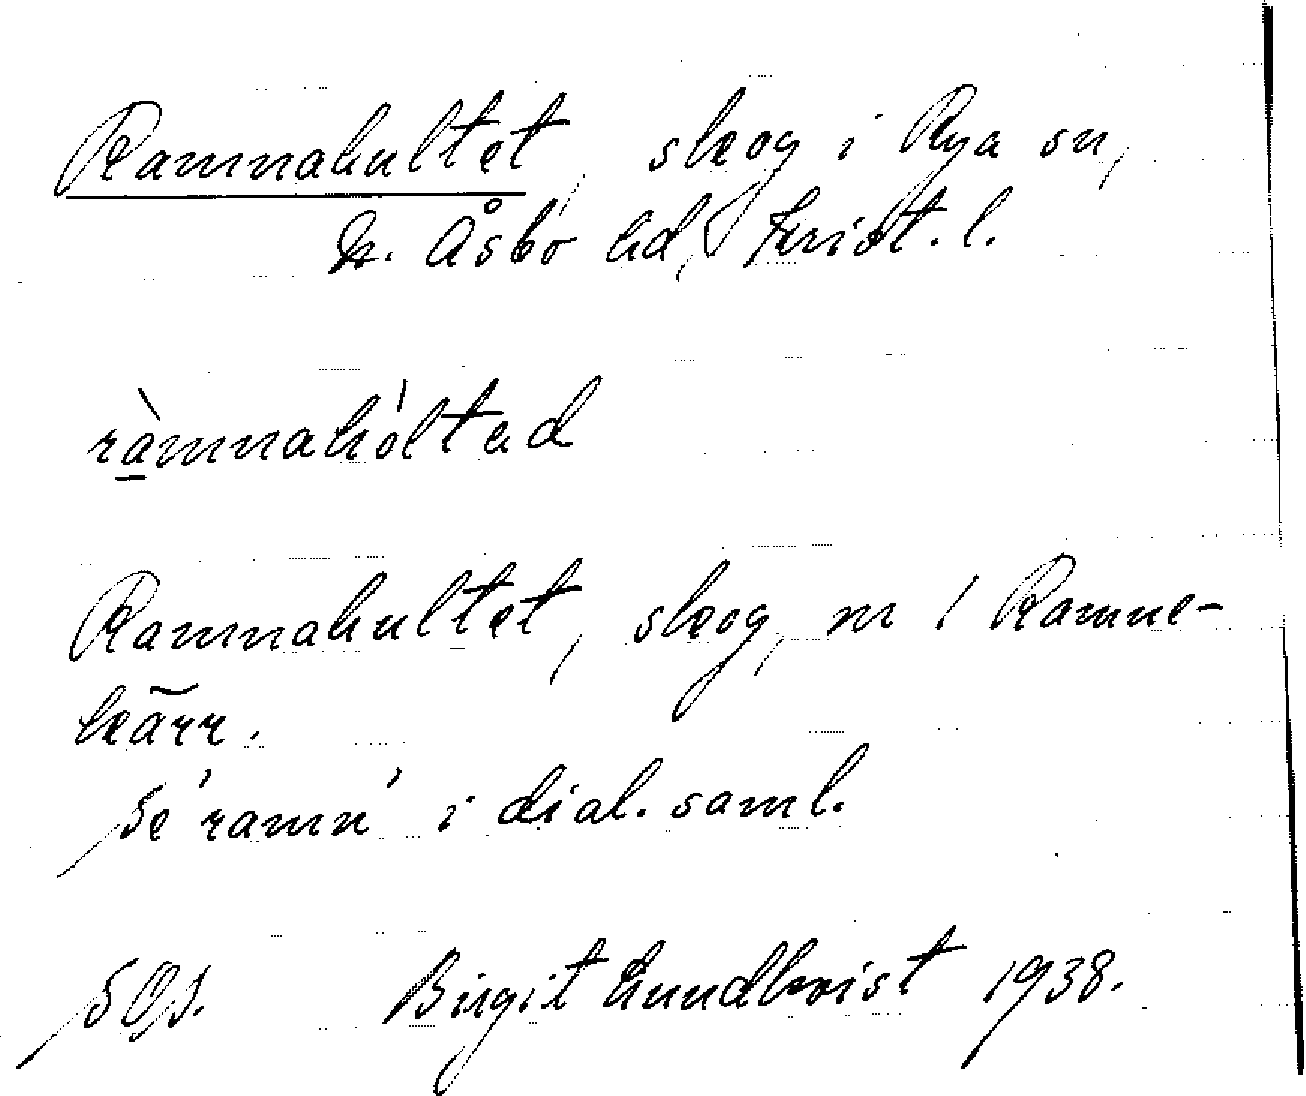 Ramnahultet, skog i Rya sn,
N. Åsbo hd, Krist. l.
ràmnahóltəd
Ramnahultet, skog, m / Ramne-
kärr.
Se 'ramn' i dial. saml.
Birgit Lundkvist 1938.